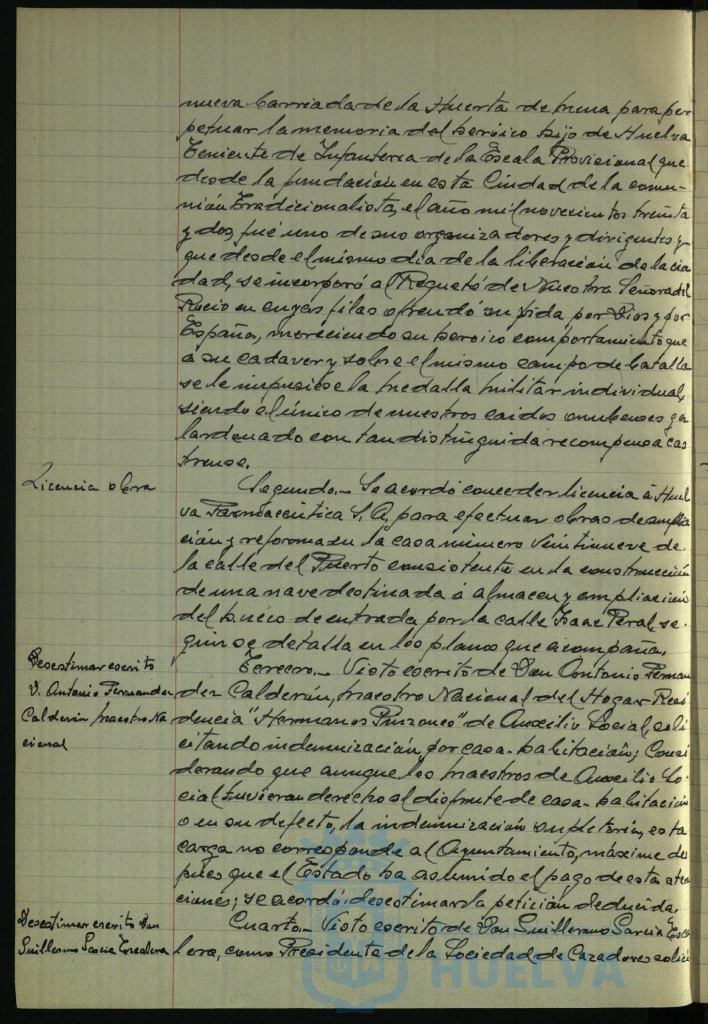 nueva barriada de la Huerta de Mena para per
petuar la memoria del heróico hijo de Huelva
Teniente de Infanteria de la Escala Provisional que
desde la fundación en esta Ciudad de la comu-
nión Tradicionalista, el año mil novecientos treinta
y dos, fué uno de sus organizadores y dirigentes y
que desde el mismo dia de la liberación de la ciu
dad, se incorporó al Requeté de Nuestra Señora del
Rocio en cuyas filas ofrendó su vida por Dios y por
España, mereciendo su heroico comportamiento que
a su cadaver y sobre el mismo campo de batalla
se le impusiese la medalla militar individual,
siendo el único de nuestros caidos onubenses ga
lardonado con tan distinguida recompensa cas
trense.
Licencia obra
Segundo.- Se acordó conceder licencia á Huel
va Farmaceutica S.A. para efectuar obras de amplia
ción y reforma en la casa número veintinueve de
la calle del Puerto consistente en la construcción
de una nave destinada á almacen y ampliación
del hueco de entrada por la calle Isaac Peral, se
gun se detalla en los planos que acompaña.
Desestimar escrito
D. Antonio Fernandez
Calderón, Maestro Na
cional
Tercero.- Visto escrito de Don Antonio Fernan
dez Calderón, Maestro Nacional del Hogar-Resi
dencia "Hermanos Pinzones" de Auxilio Social, soli
citando indemnización por casa-habitación; Consi
derando que aunque los Maestros de Auxilio So-
cial tuvieran derecho al disfrute de casa-habitación
o en su defecto, la indemnización supletoria, esta
carga no corresponde al Ayuntamiento, máxime des
pues que el Estado ha asumido el pago de esta aten
ciones; se acordó: desestimar la petición deducida.
Desestimar escrito Don
Guillermo Garcia Escalera
Cuarto.- Visto escrito de Don Guillermo Garcia Esca
lera, como Presidente de la Sociedad de Cazadores solici
HUELVA